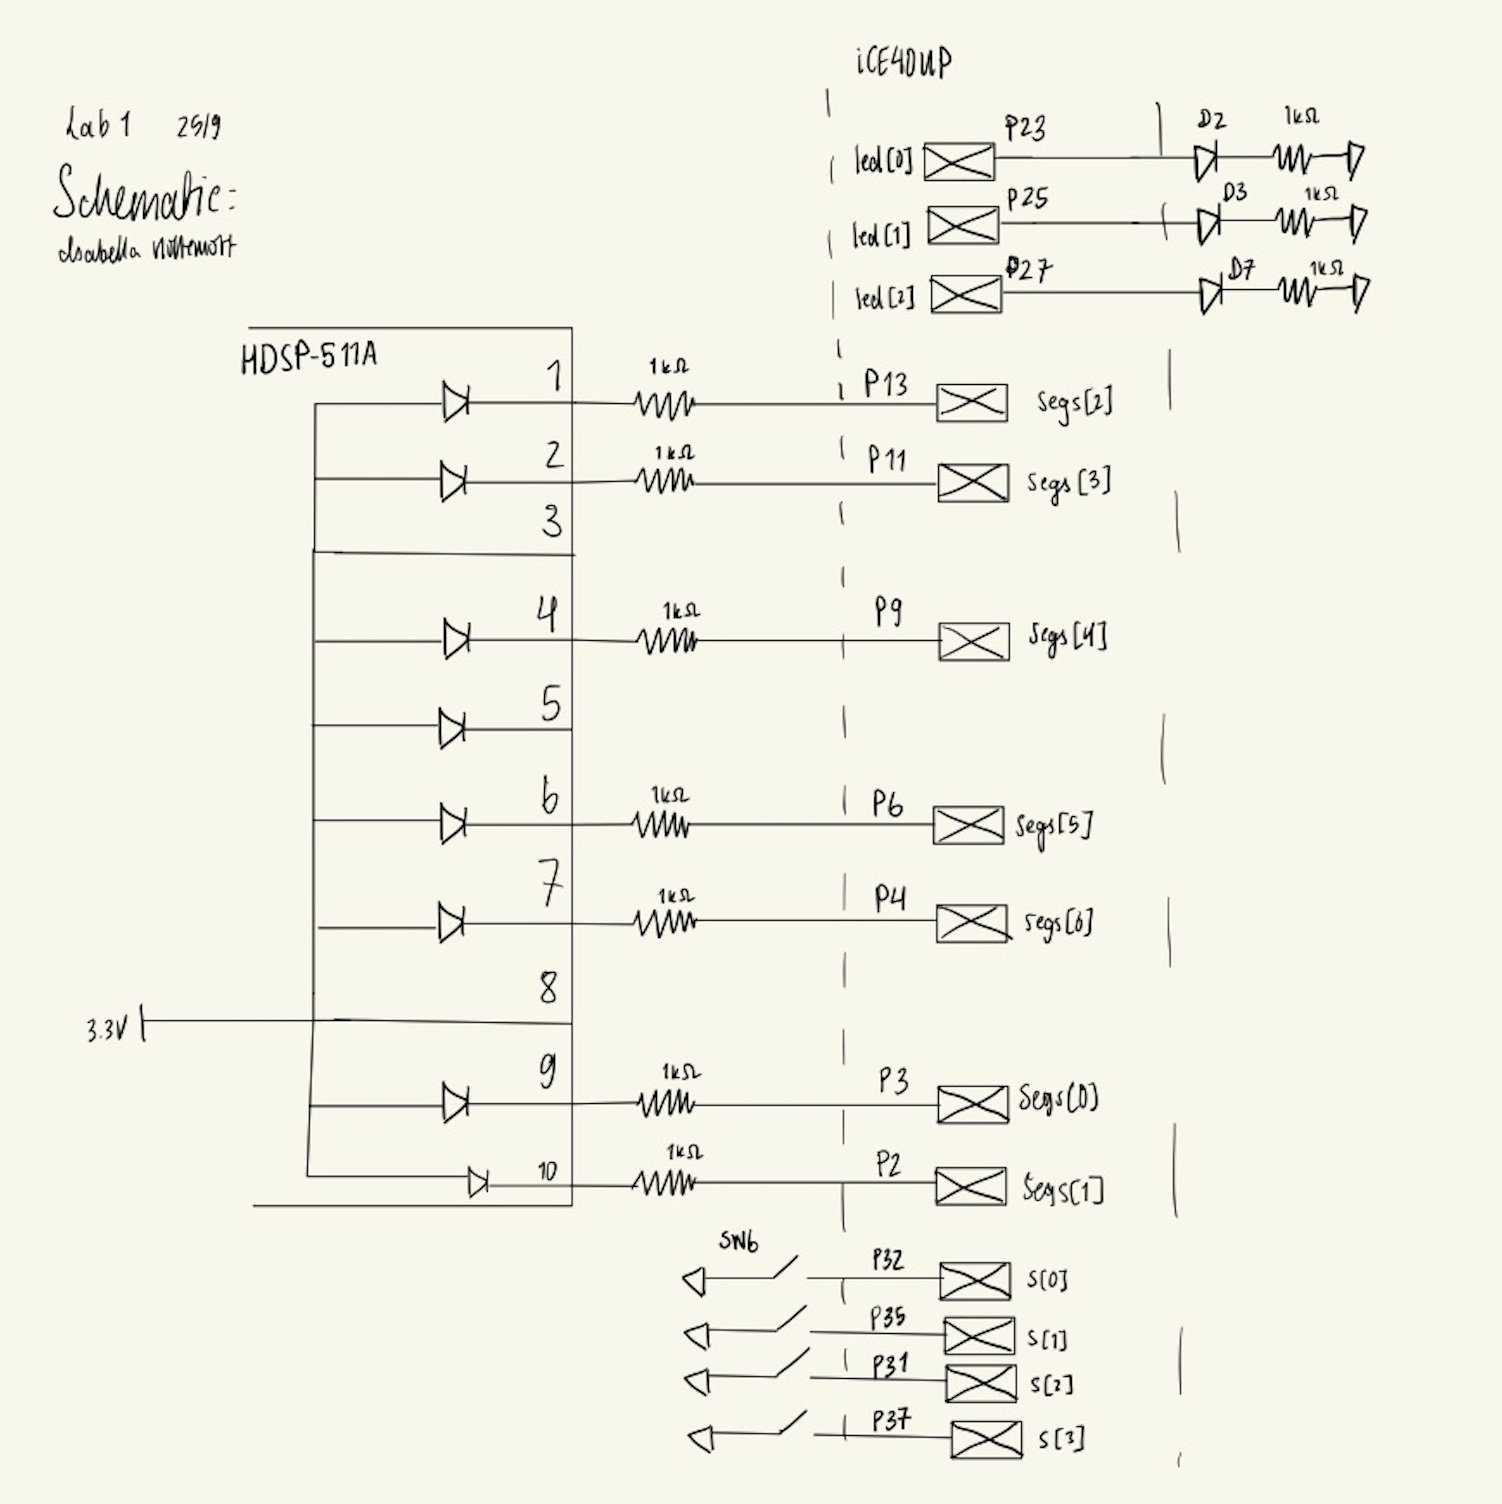 iCE40UP
Lab 1 25/9
Schematic:
Isabella
led[0] P23 D2 1kΩ
led[1] P25 D3 1kΩ
led[2] P27 D7 1kΩ
HDSP-511A
1 1kΩ P13 Segs[2]
2 1kΩ P11 Segs[3]
3
4 1kΩ P9 Segs[4]
5
6 1kΩ P6 Segs[5]
7 1kΩ P4 Segs[6]
8
3.3V
9 1kΩ P3 Segs[0]
10 1kΩ P2 Segs[1]
SW6
P32 S[0]
P35 S[1]
P31 S[2]
P37 S[3]